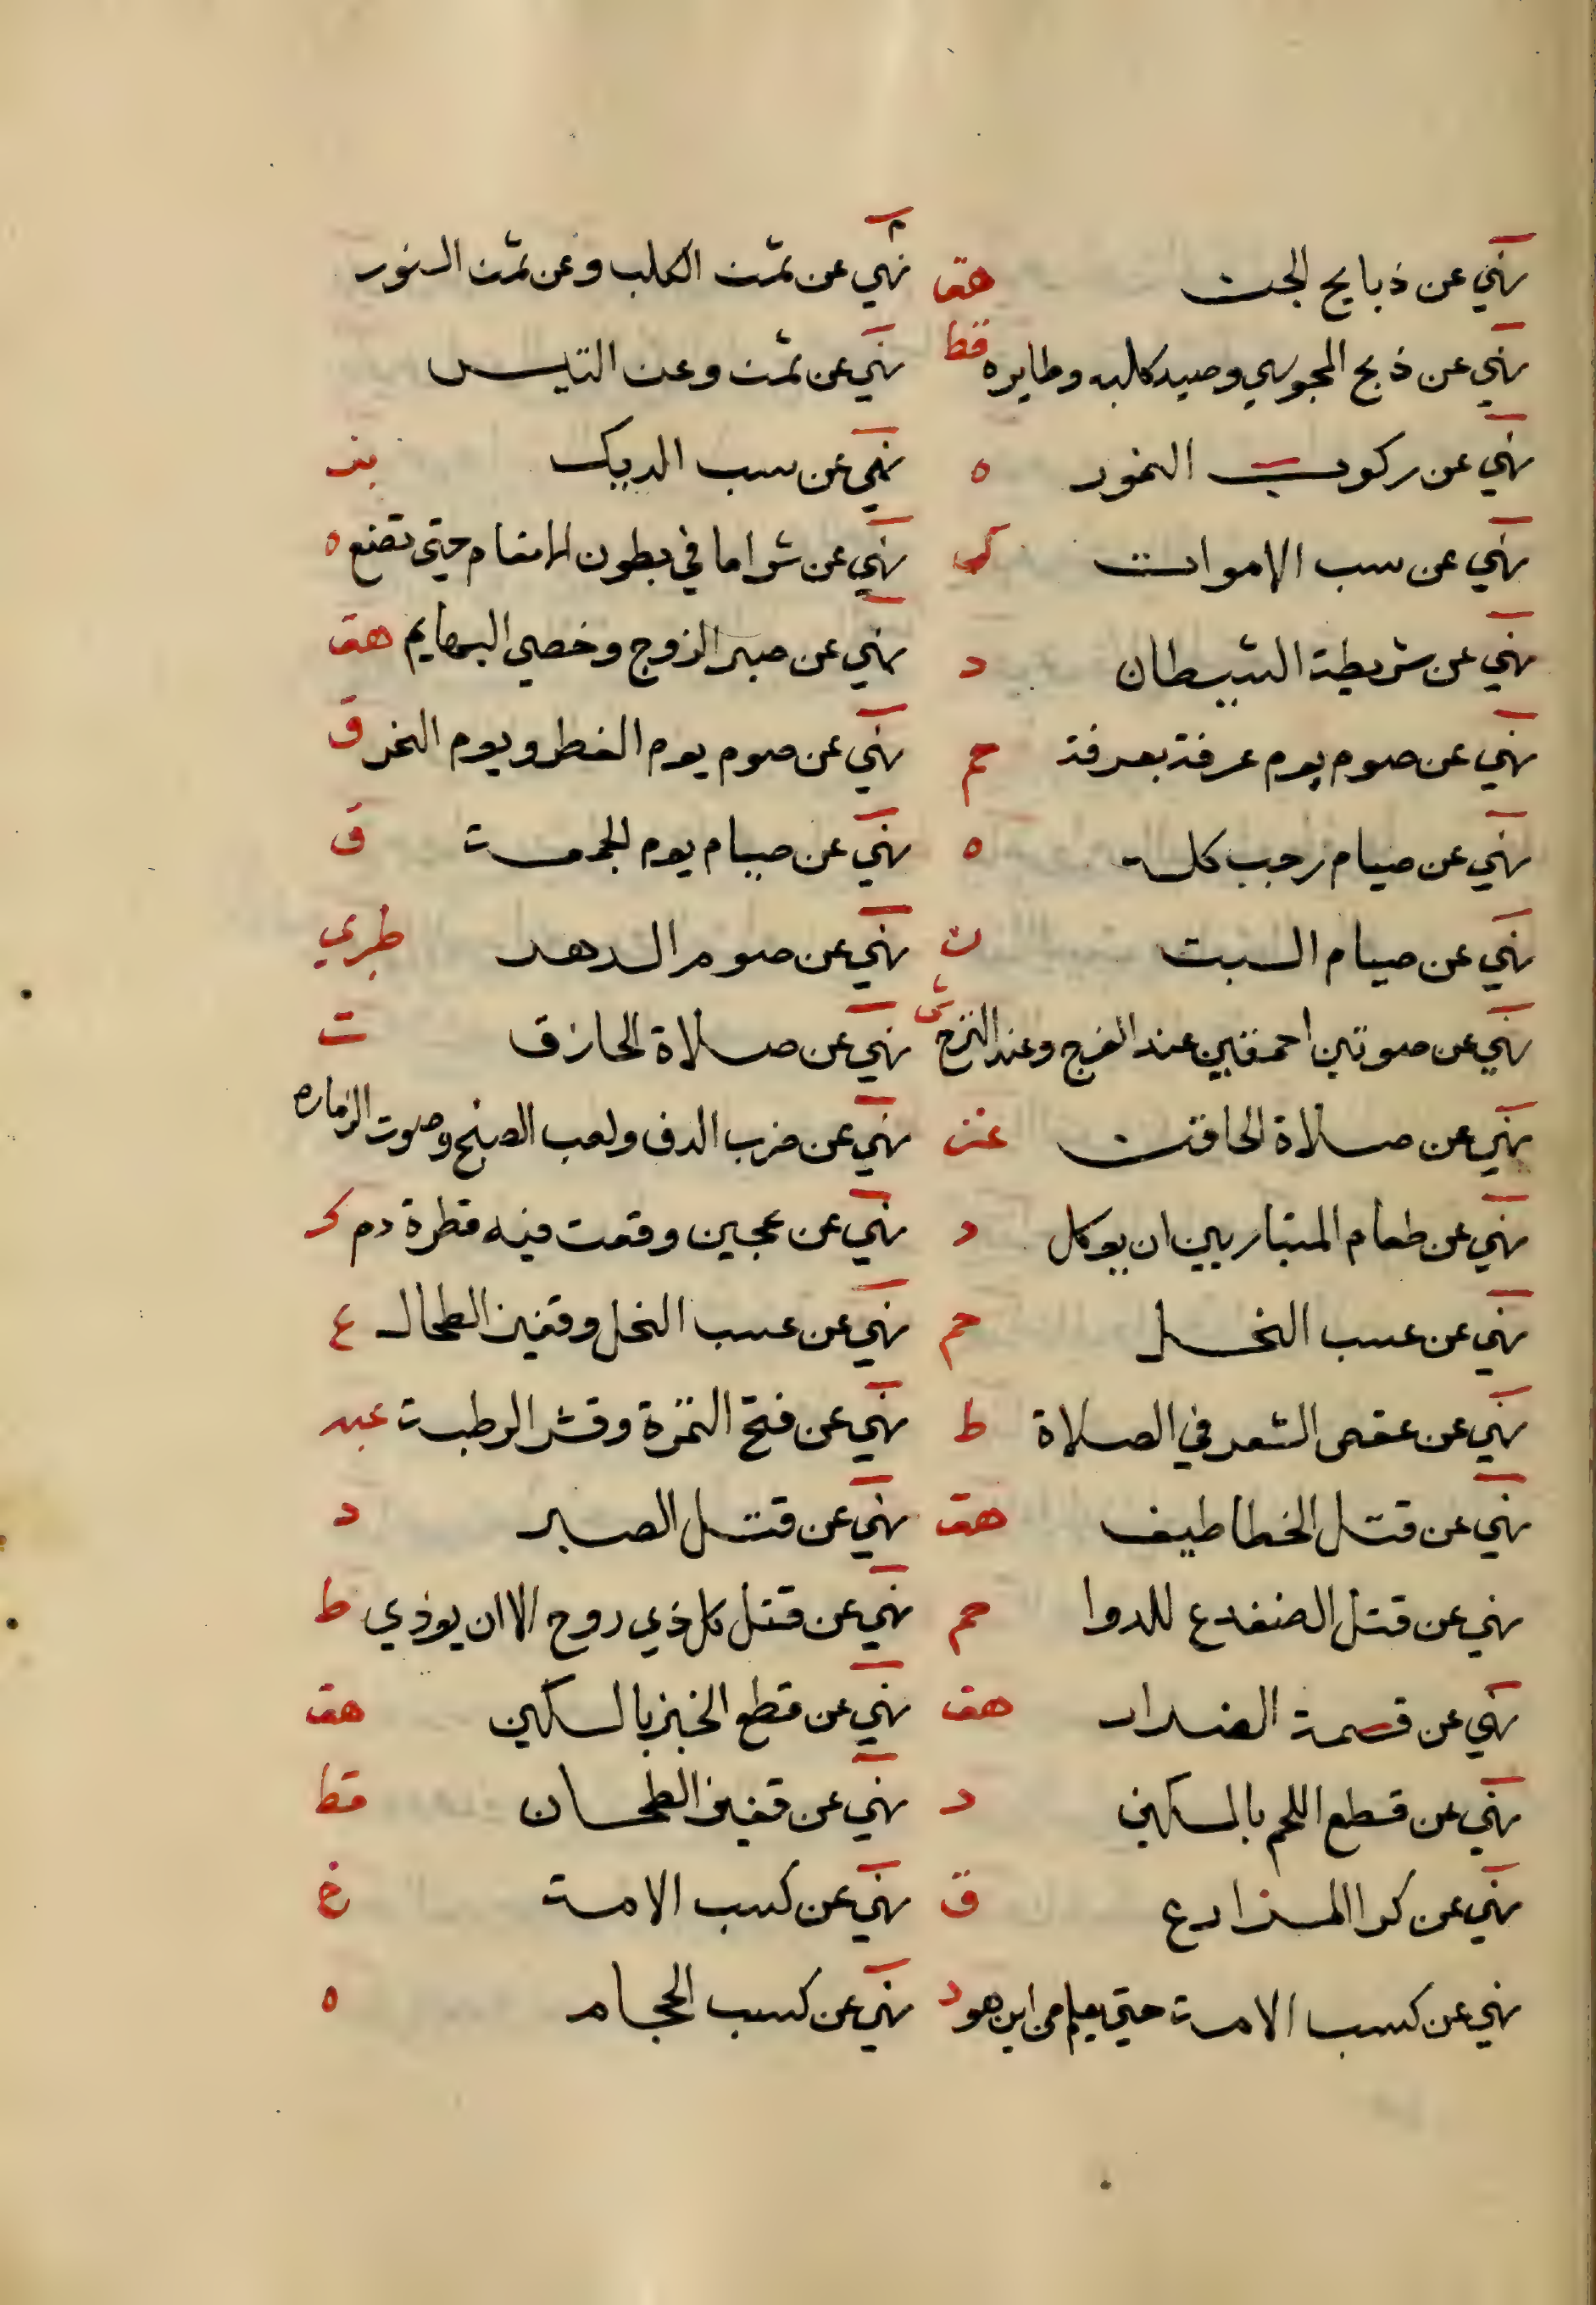 نهي عن ذبايح الجن هق
نهي عن ثمن الكلب وعن ثمن السنور م
نهي عن ذبح المجوسي وصيد كلبه وطايره قط
نهي عن ثمن وعن التيس
نهي عن ركوب النمور ه
نهي عن سب الديك بز
نهي عن سب الاموات ك
نهي عن شرا ما في بطون الانعام حتى تضع ه
نهي عن شريطة الشيطان د
نهي عن صبر الروح وخصي البهايم هق
نهي عن صوم يوم عرفة بعرفة حم
نهي عن صوم يوم الفطر ويوم النحر ق
نهي عن صيام رجب كله ه
نهي عن صيام يوم الجمعة ق
نهي عن صيام السبت ن
نهي عن صوم الدهر طبري
نهي عن صوتين احمقين عند الفرح وعند الترح ش
نهي عن صلاة الحازق ت
نهي عن صلاة الحاقن عن
نهي عن ضرب الدف ولعب الصنج وصوت الزماره
نهي عن طعام المتباريين ان يوكل د
نهي عن عجين وقعت فيه قطرة دم ك
نهي عن عسب الفحل حم
نهي عن عسب الفحل وقفيز الطحال ع
نهي عن عقص الشعر في الصلاة ط
نهي عن فتح التمرة وقشر الرطبة عبد
نهي عن قتل الخطاطيف هق
نهي عن قتل الصبر د
نهي عن قتل الضفدع للدوا حم
نهي عن قتل كل ذي روح الا ان يوذي ط
نهي عن قسمة الضرار هق
نهي عن قطع الخبز بالسكين هق
نهي عن قطع اللحم بالسكين د
نهي عن قفيز الطحان قط
نهي عن كرا المزارع ق
نهي عن كسب الامة خ
نهي عن كسب الامة حتى يعلم من اين هو د
نهي عن كسب الحجام ه